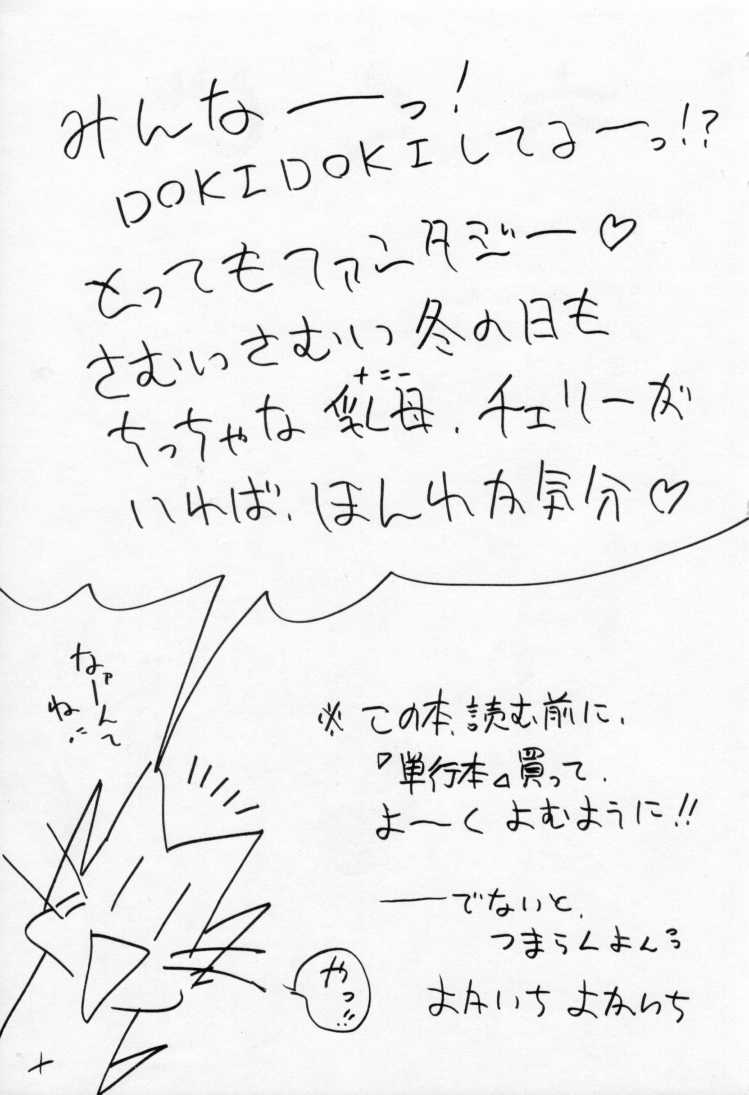 みんなーーっ!
DOKIDOKIしてるーーっ!?
とってもファンタジー♡
さむいさむい冬の日も
ちっちゃな乳母、チェリーが
いれば、ほんわか気分♡
なァーんて
ね
※この本、読む前に、
『単行本』買って、
よ〜く よむように!!
――でないと、
つまらんよん
よかいち よかいち
やっ